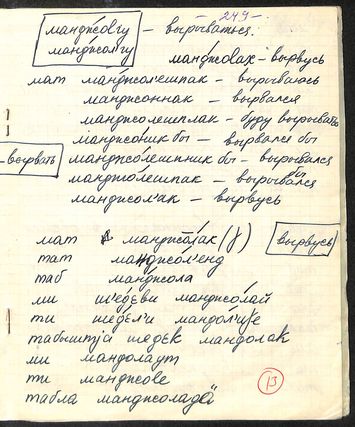 - 249 -
манджо́лгу - вырываться.
манджолгу
манджолах - вырвусь
мат манджол'ешпак - вырываюсь
манджоннак - вырвался
манджолешплак - буду вырывать
манджоник бы - вырвался бы
вырвать манджолешпник бы - вырывался бы
манджолешпак - вырывался
манджол'ак - вырвусь
мат манджолак (γ) вырвусь
тат манджол'енд
таб манджола
ми шедеви манджолай
ти шедел'и мандол'и
табыштjа шедек мандолак
ми мандолаут
ти манджове
табла манджоладе
13